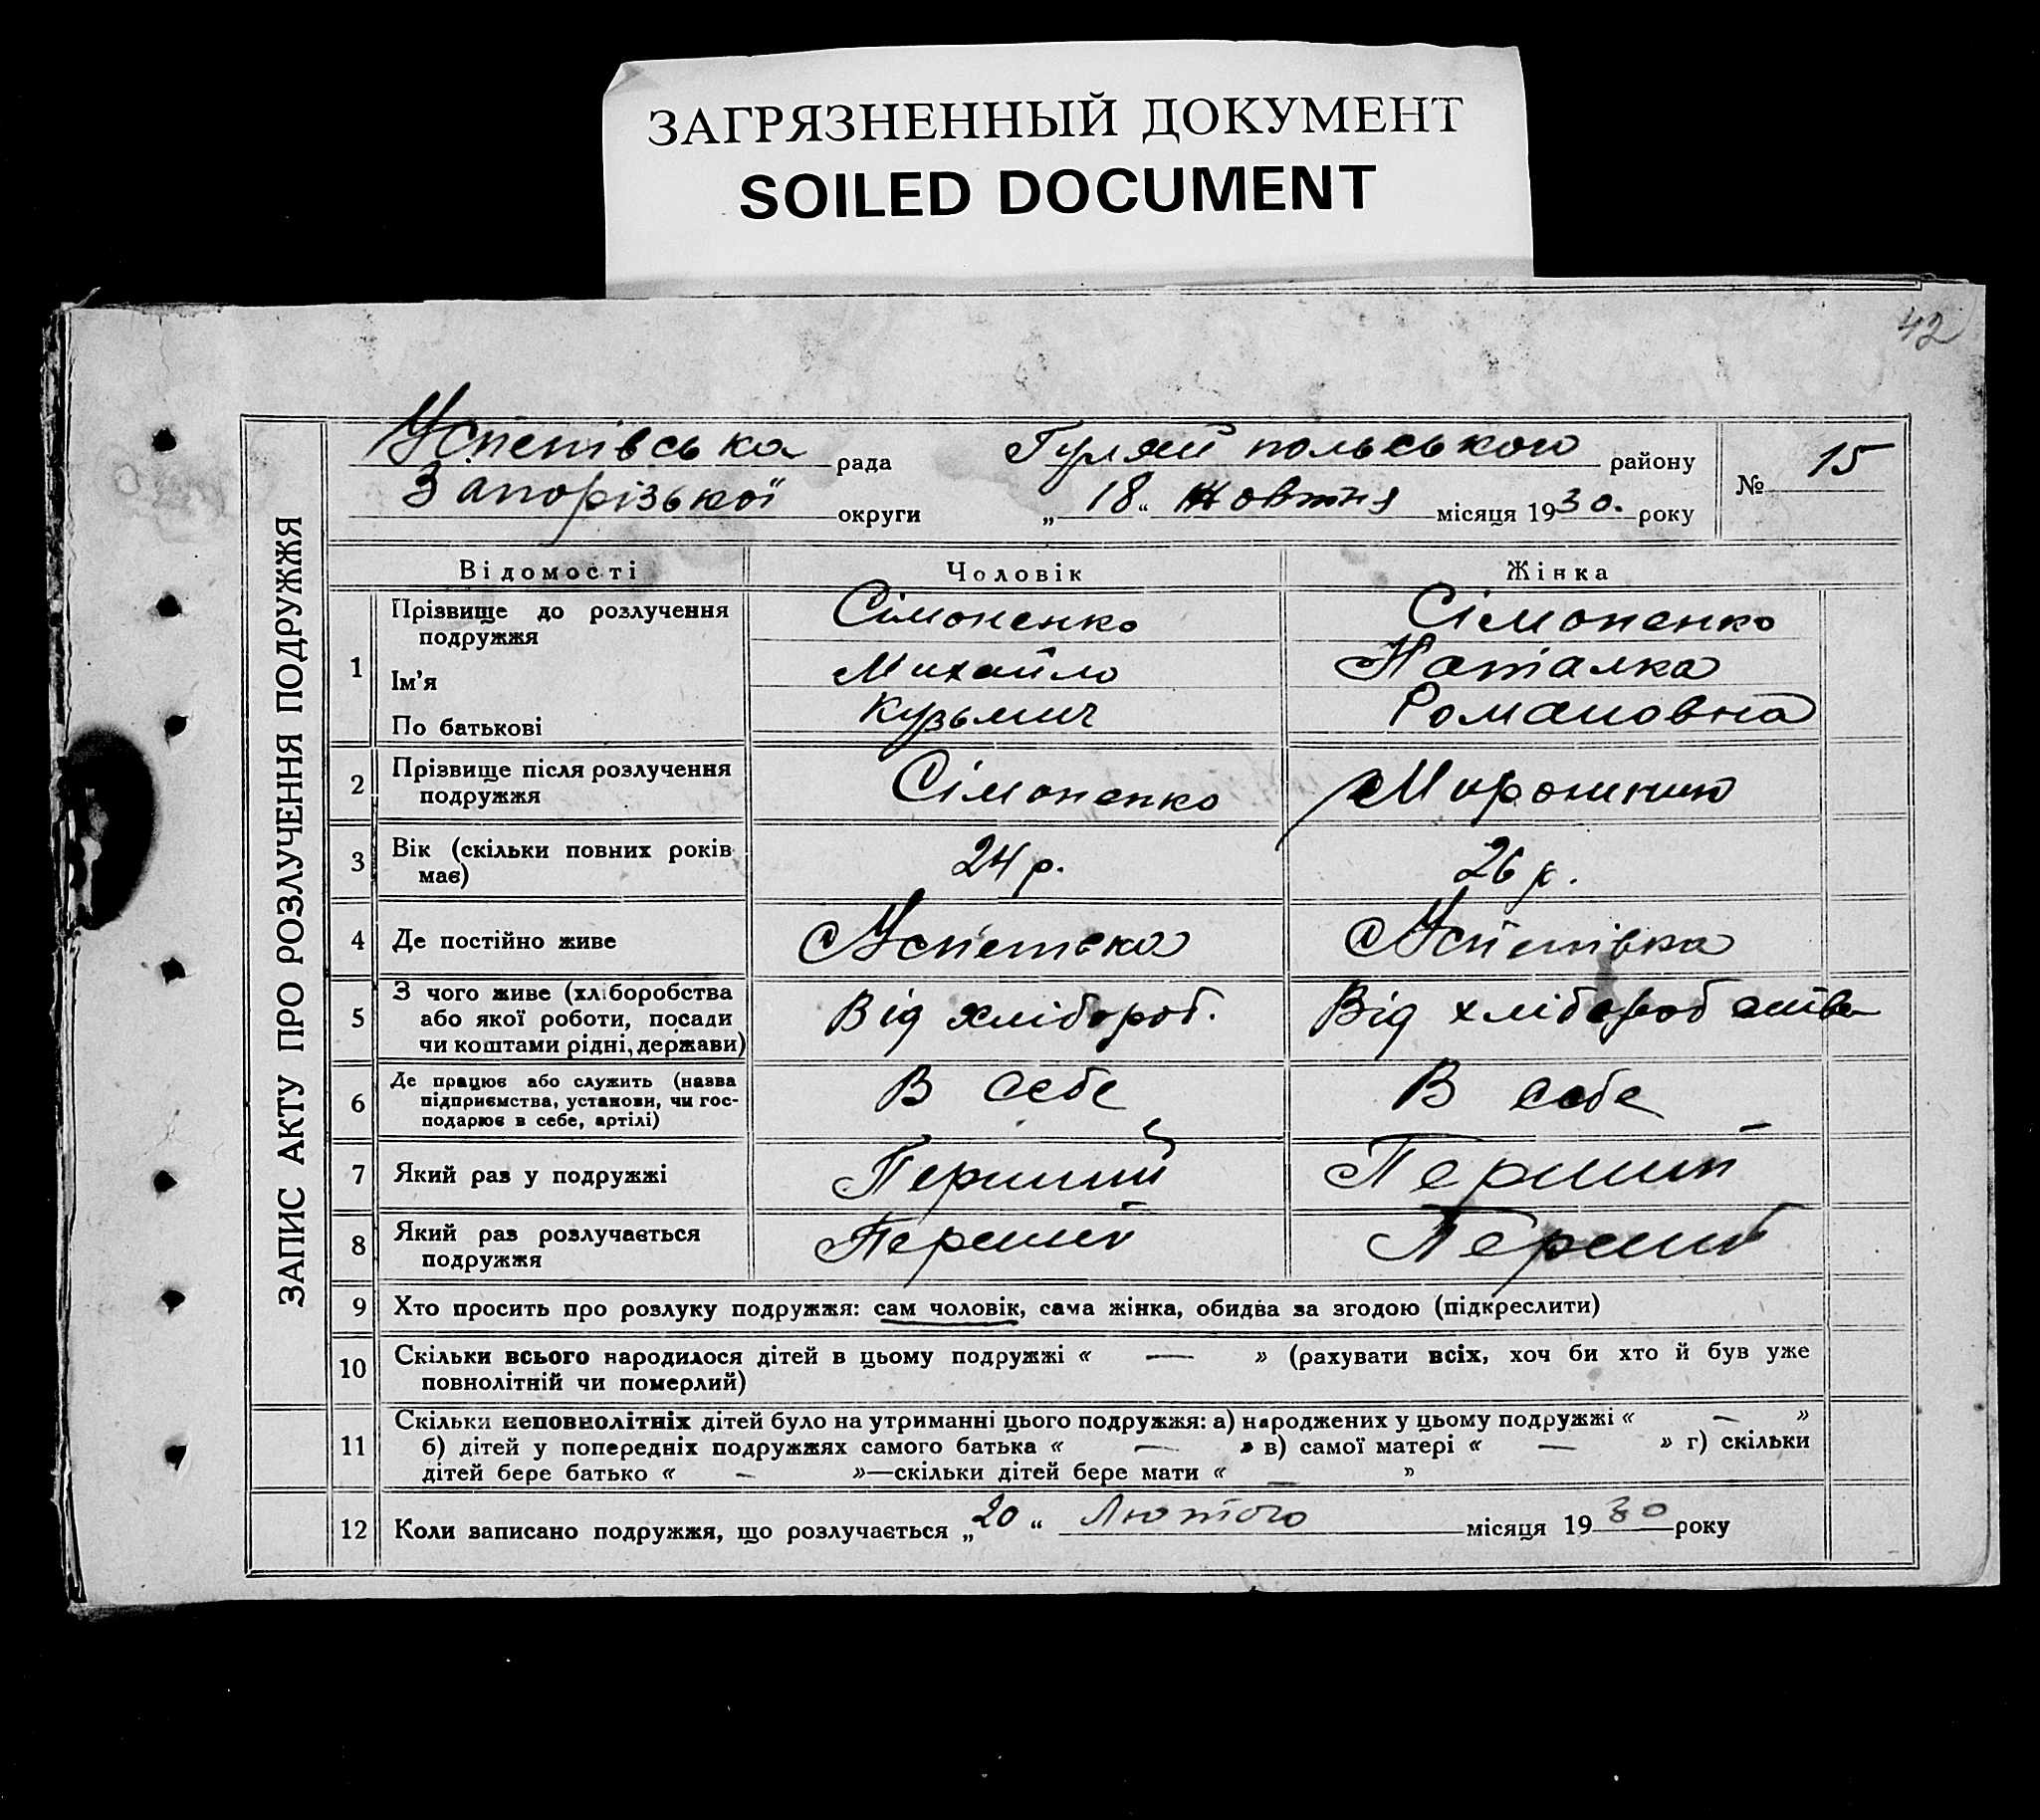 ЗАГРЯЗНЕННЫЙ ДОКУМЕНТ
SOILED DOCUMENT
42
ЗАПИС АКТУ ПРО РОЗЛУЧЕННЯ ПОДРУЖЖЯ
Успенівська рада Гуляй польського району № 15
Запорізької округи „ 18 “ Жовтня місяця 1930. року
Відомості Чоловік Жінка
1 Прізвище до розлучення подружжя Сімоненко Сімоненко
Ім'я Михайло Наталка
По батькові Кузьмич Романовна
2 Прізвище після розлучення подружжя Сімоненко
3 Вік (скільки повних років має) 24 р. 26 р.
4 Де постійно живе Успенівка
5 З чого живе (хліборобства або якої роботи, посади чи коштами рідні, держави) Від хлібороб. Від хліборобства
6 Де працює або служить (назва підприємства, установи, чи господарює в себе, артілі) В себе В себе
7 Який раз у подружжі Перший Перший
8 Який раз розлучається подружжя Перший Перший
9 Хто просить про розлуку подружжя: сам чоловік, сама жінка, обидва за згодою (підкреслити)
10 Скільки всього народилося дітей в цьому подружжі « — » (рахувати всіх, хоч би хто й був уже
повнолітній чи померлий)
11 Скільки неповнолітніх дітей було на утриманні цього подружжя: а) народжених у цьому подружжі « — »
б) дітей у попередніх подружжях самого батька « — » в) самої матері « — » г) скільки
дітей бере батько « — »—скільки дітей бере мати « — »
12 Коли записано подружжя, що розлучається „20“ Лютого місяця 1930 року